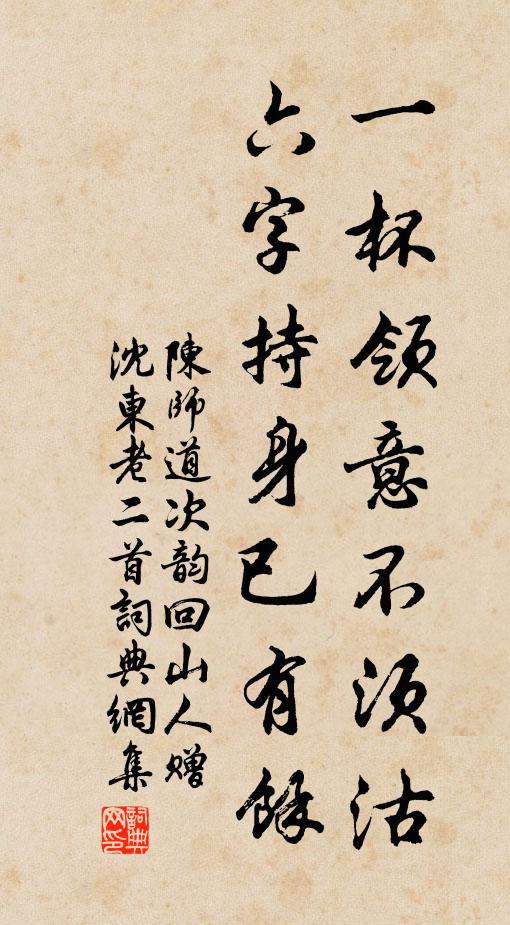 一杯領意不須沽
六字持身已有餘
陳師道次韵回山人赠
沈東老二首詞典網集
詞典网印